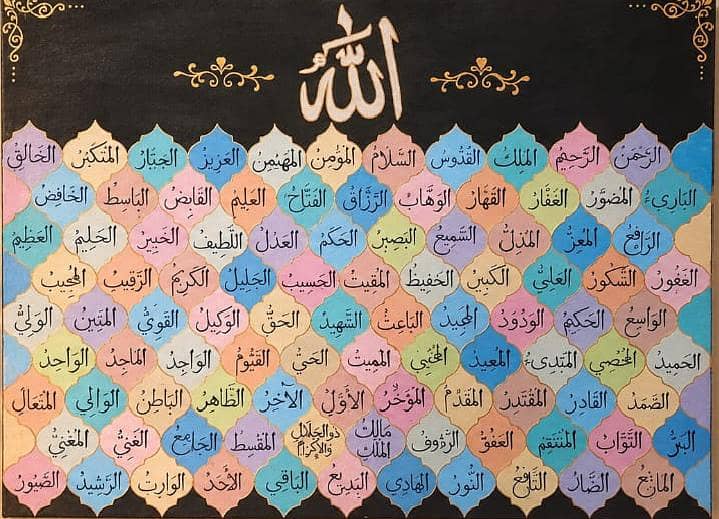 الله
الرَّحْمٰنُ الرَّحِيْمُ المَلِكُ القُدُّوْسُ السَّلَامُ المُؤْمِنُ المُهَيْمِنُ العَزِيْزُ الجَبَّارُ المُتَكَبِّرُ الخَالِقُ
البَارِىءُ المُصَوِّرُ الغَفَّارُ القَهَّارُ الوَهَّابُ الرَّزَّاقُ الفَتَّاحُ العَلِيْمُ القَابِضُ البَاسِطُ الخَافِضُ
الرَّافِعُ المُعِزُّ المُذِلُّ السَّمِيْعُ البَصِيْرُ الحَكَمُ العَدْلُ اللَّطِيْفُ الخَبِيْرُ الحَلِيْمُ العَظِيْمُ
الغَفُوْرُ الشَّكُوْرُ العَلِيُّ الكَبِيْرُ الحَفِيْظُ المُقِيْتُ الحَسِيْبُ الجَلِيْلُ الكَرِيْمُ الرَّقِيْبُ المُجِيْبُ
الوَاسِعُ الحَكِيْمُ الوَدُوْدُ المَجِيْدُ البَاعِثُ الشَّهِيْدُ الحَقُّ الوَكِيْلُ القَوِيُّ المَتِيْنُ الوَلِيُّ
الحَمِيْدُ المُحْصِي المُبْتَدِىءُ المُعِيْدُ المُحْيِي المُمِيْتُ الحَيُّ القَيُّوْمُ الوَاجِدُ المَاجِدُ الوَاحِدُ
الصَّمَدُ القَادِرُ المُقْتَدِرُ المُقَدِّمُ المُؤَخِّرُ الأَوَّلُ الآخِرُ الظَّاهِرُ البَاطِنُ الوَالِي المُتَعَالِ
البَرُّ التَّوَّابُ المُنْتَقِمُ العَفُوُّ الرَّؤُوفُ مَالِكُ المُلْكِ ذُوالجَلَالِ وَالإِكْرَامِ المُقْسِطُ الجَامِعُ الغَنِيُّ المُغْنِيُّ
المَانِعُ الضَّارُّ النَّافِعُ النُّوْرُ الهَادِي البَدِيْعُ البَاقِي الأَحَدُ الوَارِثُ الرَّشِيْدُ الصَّبُوْرُ